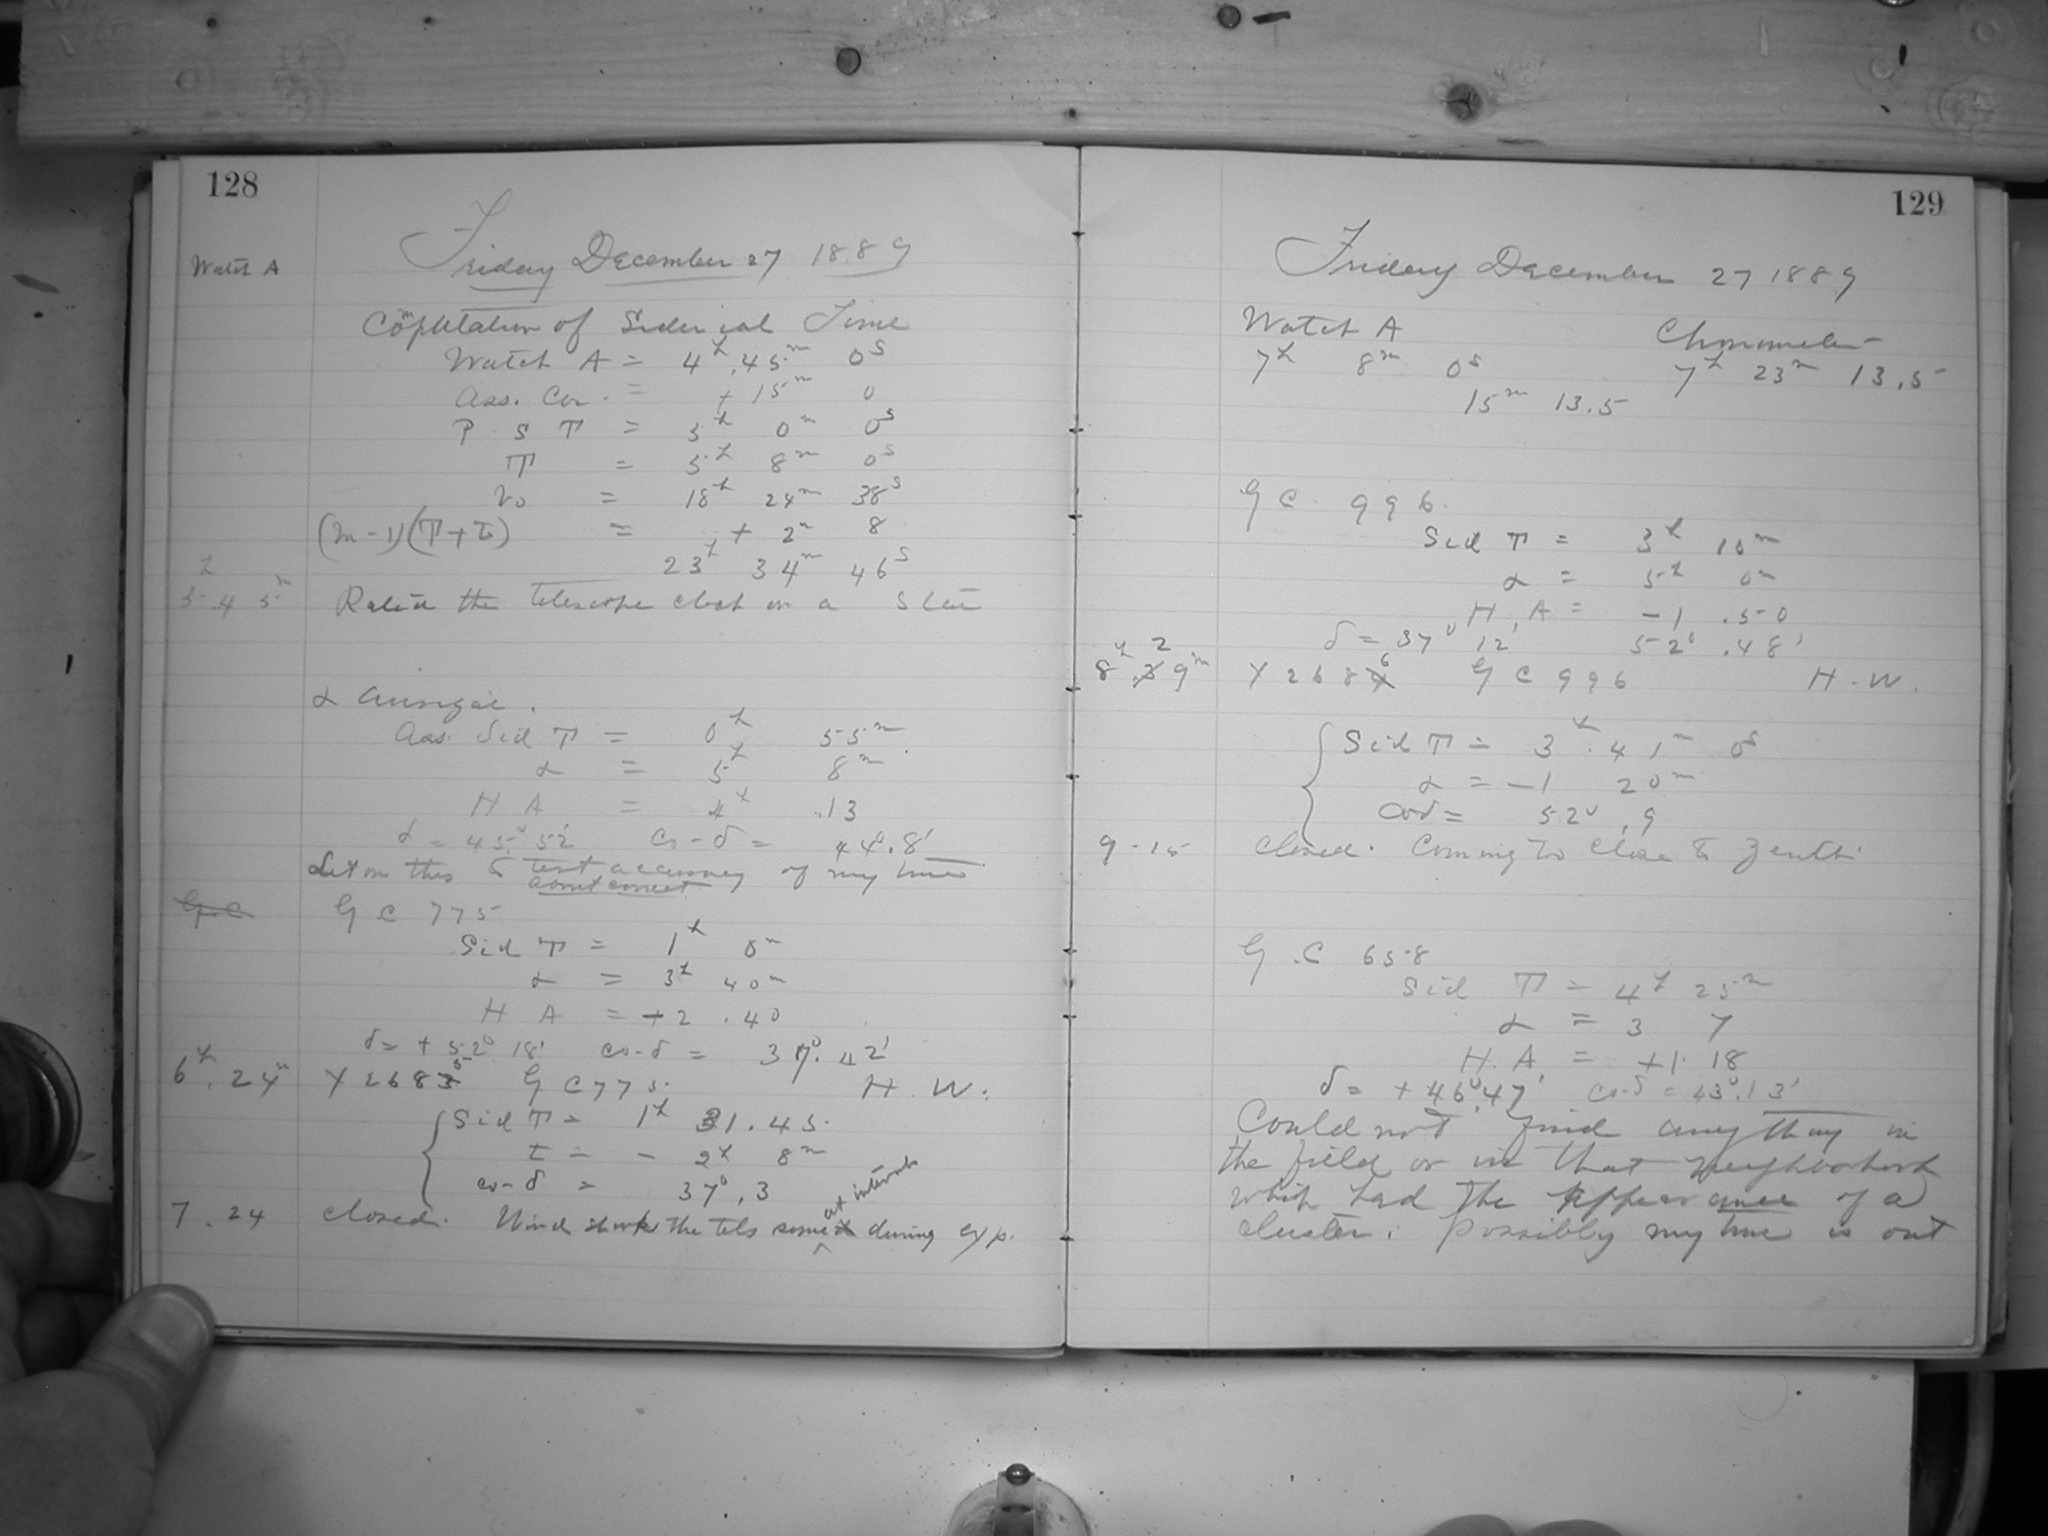 128
Friday December 27 1889
Watch A
Computation of Siderial Time
Watch A = 4h.45m 0s
Ass. Cor. = + 15m 0
P S T = 5h 0m 0s
T = 5h 8m 0s
V0 = 18h 24m 38s
(m-1)(T+τ) = + 2m 8
23h 34m 46s
5h.45m the telescope clock on a
α Aurigae.
Ass. Sid T = 0h 55m
α = 5h 8m
H A = 4h .13
δ = 45° 52' co-δ = 44°.8'
Set on this to test accuracy of my time
G.C. G C 775
Sid T = 1h 0m
α = 3h 40m
H A = +2 .40
δ = + 52° 18' co-δ = 37°.42'
6h.24m Y 2685 G C 775. H. W.
Sid T = 1h 31.45.
t = - 2h 8m
co-δ = 37°,3
at intervals
7.24 closed. Wind shook the tels some during exp.
129
Friday December 27 1889
Watch A Chronometer
7h 8m 0s 7h 23m 13.5
15m 13.5
G C. 996.
Sid T = 3h 10m
α = 5h 0m
H.A = -1 .50
δ = 37° 12' 52° .48'
8h.29m Y 2686 G C 996 H. W.
Sid T = 3h.41m 0s
α = -1 20m
co δ = 52°,9
9-15 closed. Coming to close to Zenith.
G.C 658
Sid T = 4h 25m
α = 3 7
H.A. = +1. 18
δ = + 46°.47' co-δ = 43°.13'
Could not find anything in
the field or in that neighborhood
which had the appearance of a
cluster. Possibly my time is out